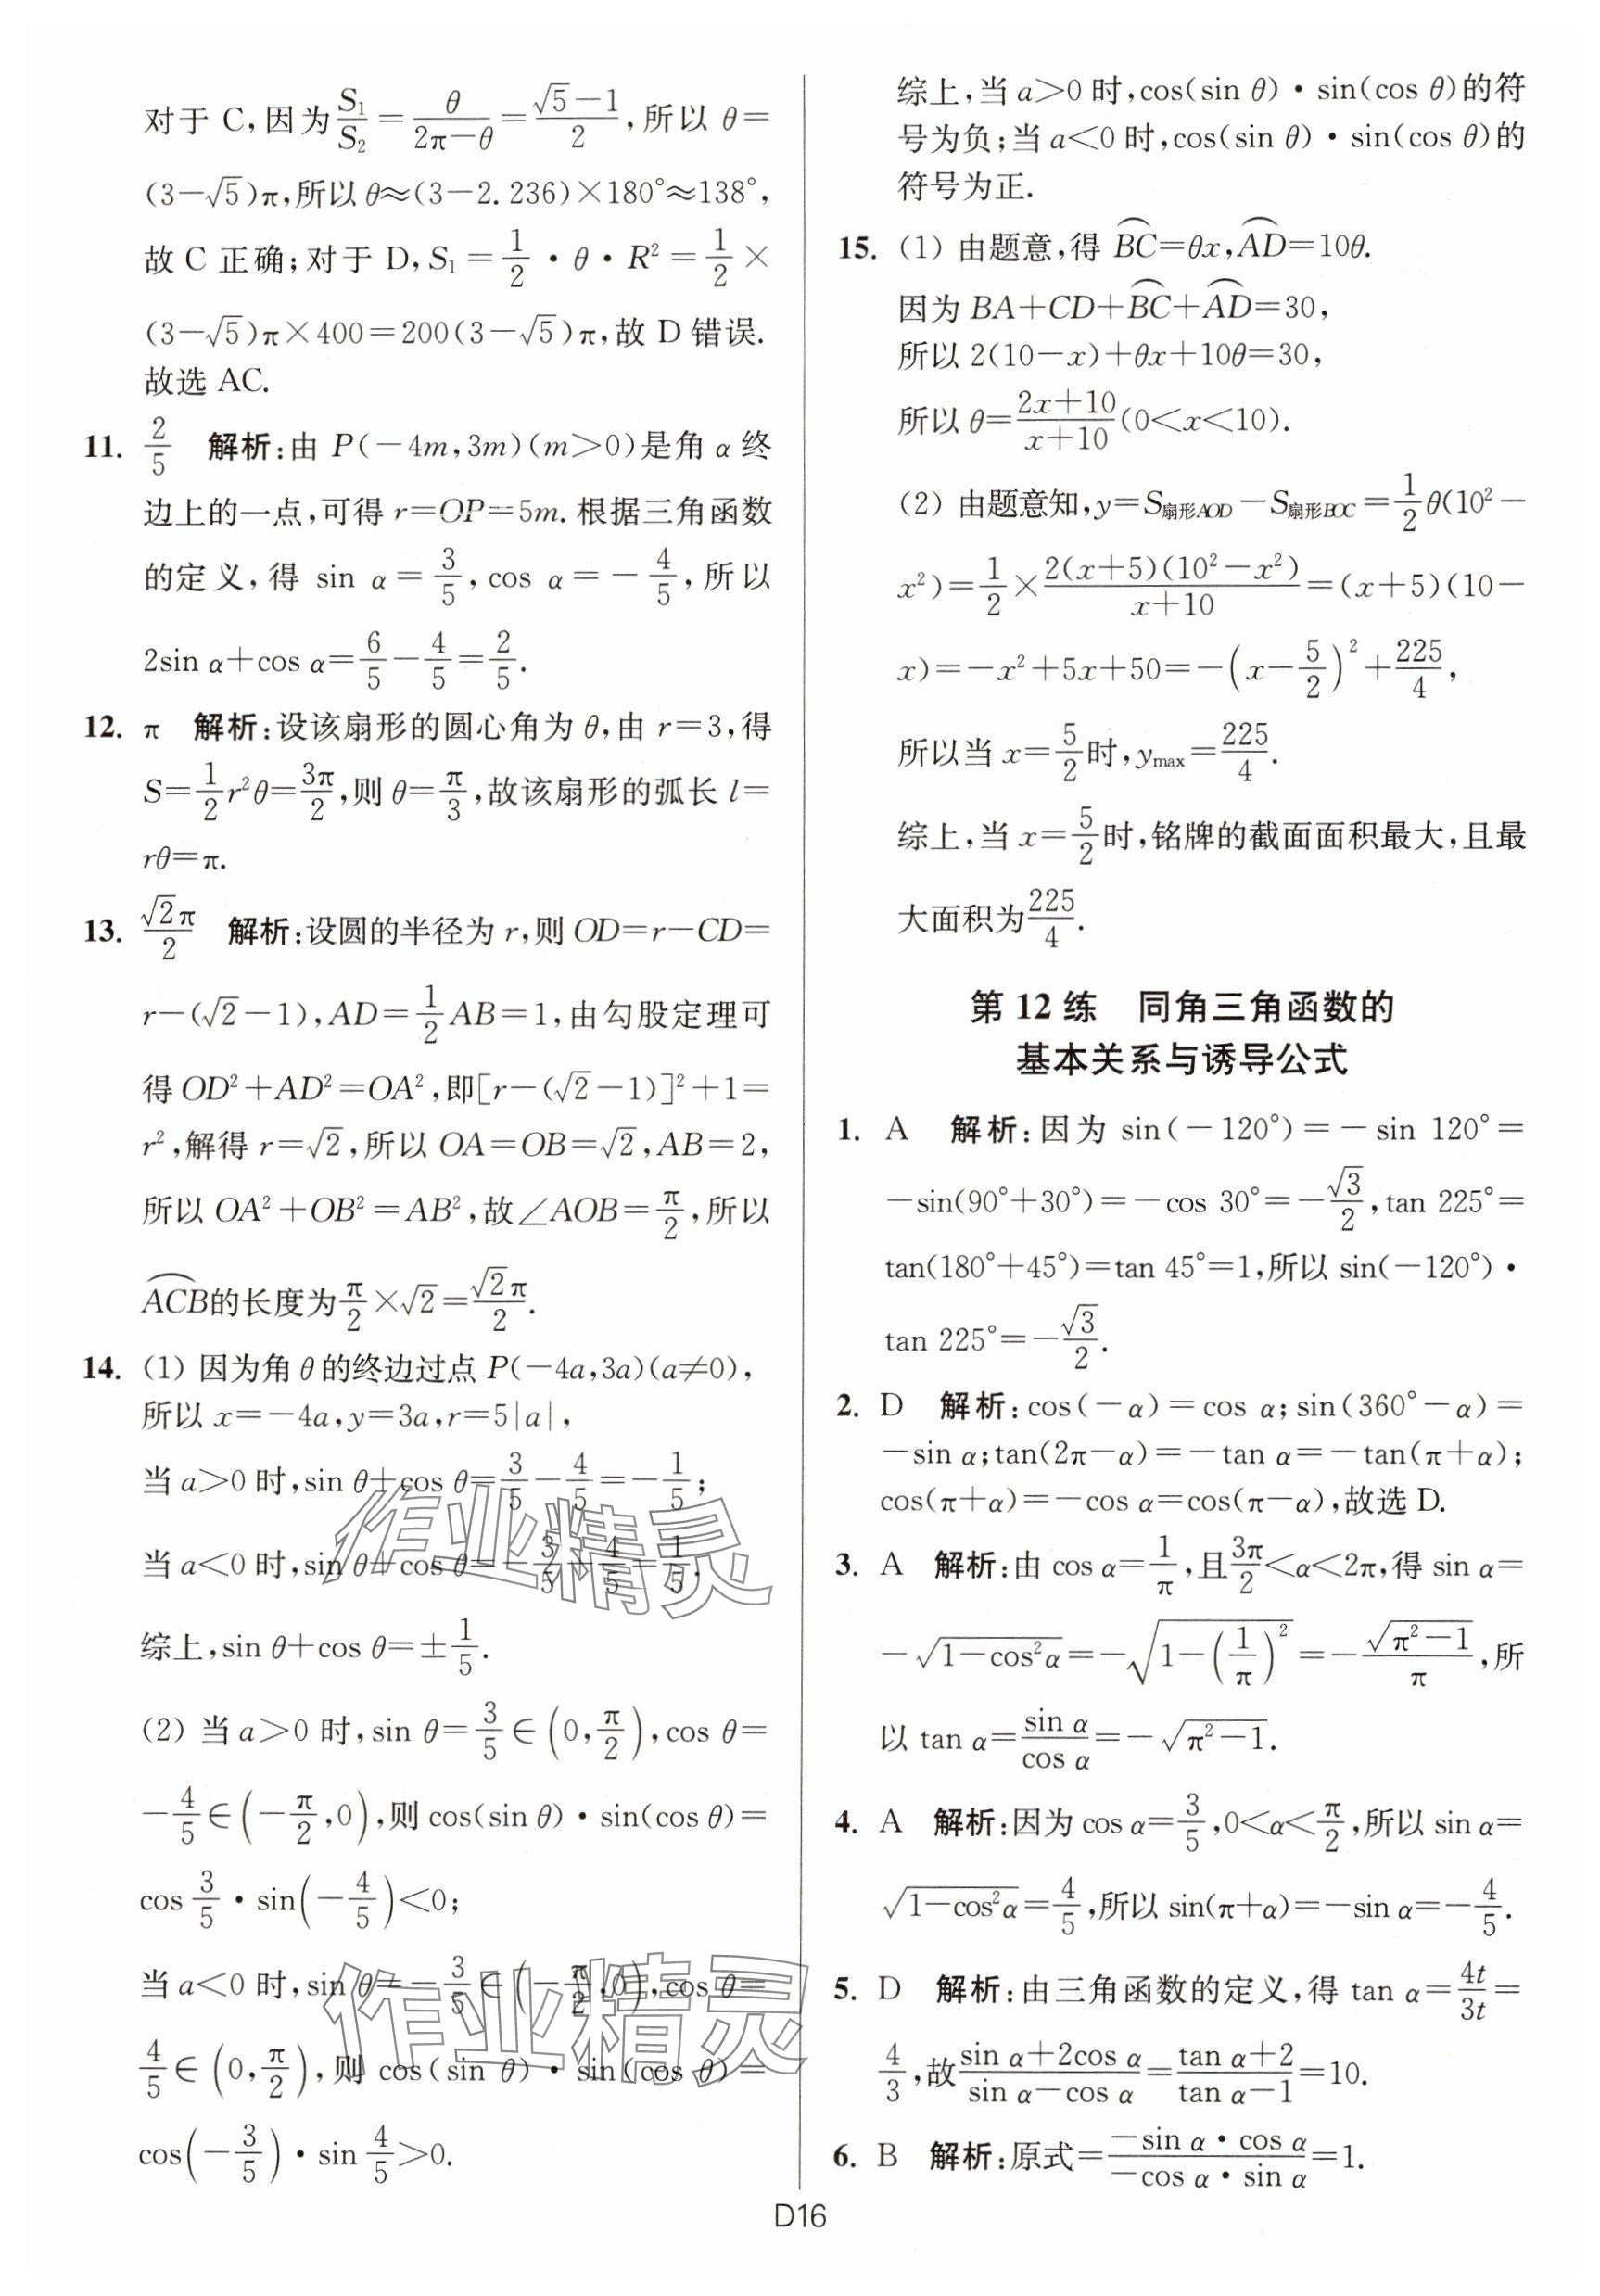 对于 C,因为$\frac{S_1}{S_2}=\frac{θ}{2π-θ}=\frac{\sqrt{5}-1}{2}$,所以 θ=
(3-√5)π,所以 θ≈(3-2.236)×180°≈138°,
故 C 正确;对于 D,$S_1=\frac{1}{2}·θ·R^2=\frac{1}{2}×$
(3-√5)π×400=200(3-√5)π,故 D 错误.
故选 AC.
11. $\frac{2}{5}$ 解析:由 P(-4m,3m)(m>0)是角 α 终
边上的一点,可得 r=OP=5m. 根据三角函数
的定义,得 sin α=$\frac{3}{5}$,cos α=-$\frac{4}{5}$,所以
2sin α+cos α=$\frac{6}{5}-\frac{4}{5}=\frac{2}{5}$.
12. π 解析:设该扇形的圆心角为 θ,由 r=3,得
$S=\frac{1}{2}r^2θ=\frac{3π}{2}$,则 θ=$\frac{π}{3}$,故该扇形的弧长 l=
rθ=π.
13. $\frac{\sqrt{2}π}{2}$ 解析:设圆的半径为 r,则 OD=r-CD=
r-(√2-1),AD=$\frac{1}{2}$AB=1,由勾股定理可
得 OD²+AD²=OA²,即[r-(√2-1)]²+1=
r²,解得 r=√2,所以 OA=OB=√2,AB=2,
所以 OA²+OB²=AB²,故∠AOB=$\frac{π}{2}$,所以
$\overset{\frown}{ACB}$的长度为$\frac{π}{2}×\sqrt{2}=\frac{\sqrt{2}π}{2}$.
14. (1) 因为角 θ 的终边过点 P(-4a,3a)(a≠0),
所以 x=-4a,y=3a,r=5|a|,
当 a>0 时,sin θ+cos θ=$\frac{3}{5}-\frac{4}{5}=-\frac{1}{5}$;
当 a<0 时,sin θ+cos θ=$-\frac{3}{5}+\frac{4}{5}=\frac{1}{5}$.
综上,sin θ+cos θ=±$\frac{1}{5}$.
(2) 当 a>0 时,sin θ=$\frac{3}{5}∈\left(0,\frac{π}{2}\right)$,cos θ=
$-\frac{4}{5}∈\left(-\frac{π}{2},0\right)$,则 cos(sin θ)·sin(cos θ)=
cos $\frac{3}{5}$·sin$\left(-\frac{4}{5}\right)$<0;
当 a<0 时,sin θ=$-\frac{3}{5}∈\left(-\frac{π}{2},0\right)$,cos θ=
$\frac{4}{5}∈\left(0,\frac{π}{2}\right)$,则 cos(sin θ)·sin(cos θ)=
cos$\left(-\frac{3}{5}\right)$·sin $\frac{4}{5}$>0.
综上,当 a>0 时,cos(sin θ)·sin(cos θ)的符
号为负;当 a<0 时,cos(sin θ)·sin(cos θ)的
符号为正.
15. (1) 由题意,得 $\overset{\frown}{BC}$=θx,$\overset{\frown}{AD}$=10θ.
因为 BA+CD+$\overset{\frown}{BC}$+$\overset{\frown}{AD}$=30,
所以 2(10-x)+θx+10θ=30,
所以 θ=$\frac{2x+10}{x+10}$(0<x<10).
(2) 由题意知,$y=S_{扇形AOD}-S_{扇形BOC}=\frac{1}{2}θ(10^2-$
$x^2)=\frac{1}{2}×\frac{2(x+5)(10^2-x^2)}{x+10}=(x+5)(10-$
$x)=-x^2+5x+50=-\left(x-\frac{5}{2}\right)^2+\frac{225}{4}$,
所以当 x=$\frac{5}{2}$时,$y_{max}=\frac{225}{4}$.
综上,当 x=$\frac{5}{2}$时,铭牌的截面面积最大,且最
大面积为$\frac{225}{4}$.
第 12 练 同角三角函数的
基本关系与诱导公式
1. A 解析:因为 sin(-120°)=-sin 120°=
-sin(90°+30°)=-cos 30°=$-\frac{\sqrt{3}}{2}$,tan 225°=
tan(180°+45°)=tan 45°=1,所以 sin(-120°)·
tan 225°=$-\frac{\sqrt{3}}{2}$.
2. D 解析:cos(-α)=cos α;sin(360°-α)=
-sin α;tan(2π-α)=-tan α=-tan(π+α);
cos(π+α)=-cos α=cos(π-α),故选 D.
3. A 解析:由 cos α=$\frac{1}{π}$,且$\frac{3π}{2}$<α<2π,得 sin α=
$-\sqrt{1-cos^2α}=-\sqrt{1-\left(\frac{1}{π}\right)^2}=-\frac{\sqrt{π^2-1}}{π}$,所
以 tan α=$\frac{sin α}{cos α}=-\sqrt{π^2-1}$.
4. A 解析:因为 cos α=$\frac{3}{5}$,0<α<$\frac{π}{2}$,所以 sin α=
$\sqrt{1-cos^2α}=\frac{4}{5}$,所以 sin(π+α)=-sin α=$-\frac{4}{5}$.
5. D 解析:由三角函数的定义,得 tan α=$\frac{4t}{3t}$=
$\frac{4}{3}$,故$\frac{sin α+2cos α}{sin α-cos α}=\frac{tan α+2}{tan α-1}$=10.
6. B 解析:原式=$\frac{-sin α·cos α}{-cos α·sin α}$=1.
D16
作业精灵
作业精灵